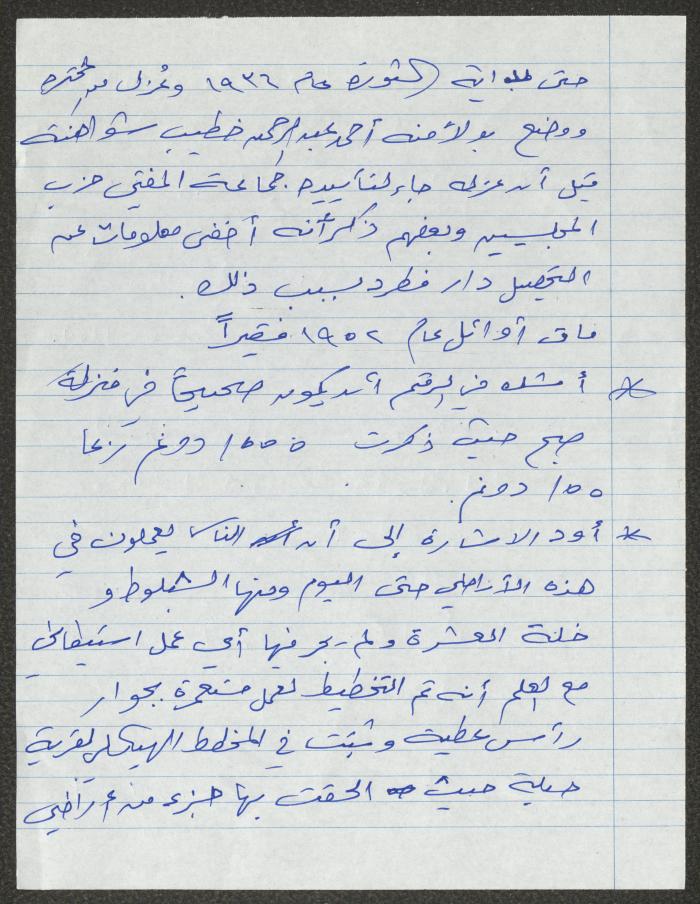 حتى بداية الثورة عام ١٩٣٦ وعُزل من المخترة
ووضع بولا منه أحمد عبد الرحمن خطيب شواهنة
قيل أن عزله جاء لتأييده جماعة المفتي حزب
المجلسيين وبعضهم ذكر أنه أخفى معلومات عن
التحصيل دار فطرد بسبب ذلك.
مات أوائل عام ١٩٥٢ فقيراً
* أشك في الرقم أن يكون صحيحاً في منزلة
صبح حيث ذكرت ١٥٥٥ دونم ربما
١٥٥ دونم.
* أود الاشارة إلى أن الناس يعملون في
هذه الأراضي حتى اليوم ومنها الشلوط و
خلة العشرة ولم يجر فيها أي عمل استيطاني
مع العلم أنه تم التخطيط لعمل مستعمرة بجوار
رأس عطية وثبتت في المخطط الهيكلي لقرية
حبلة حيث الحقت بها جزء من أراضي